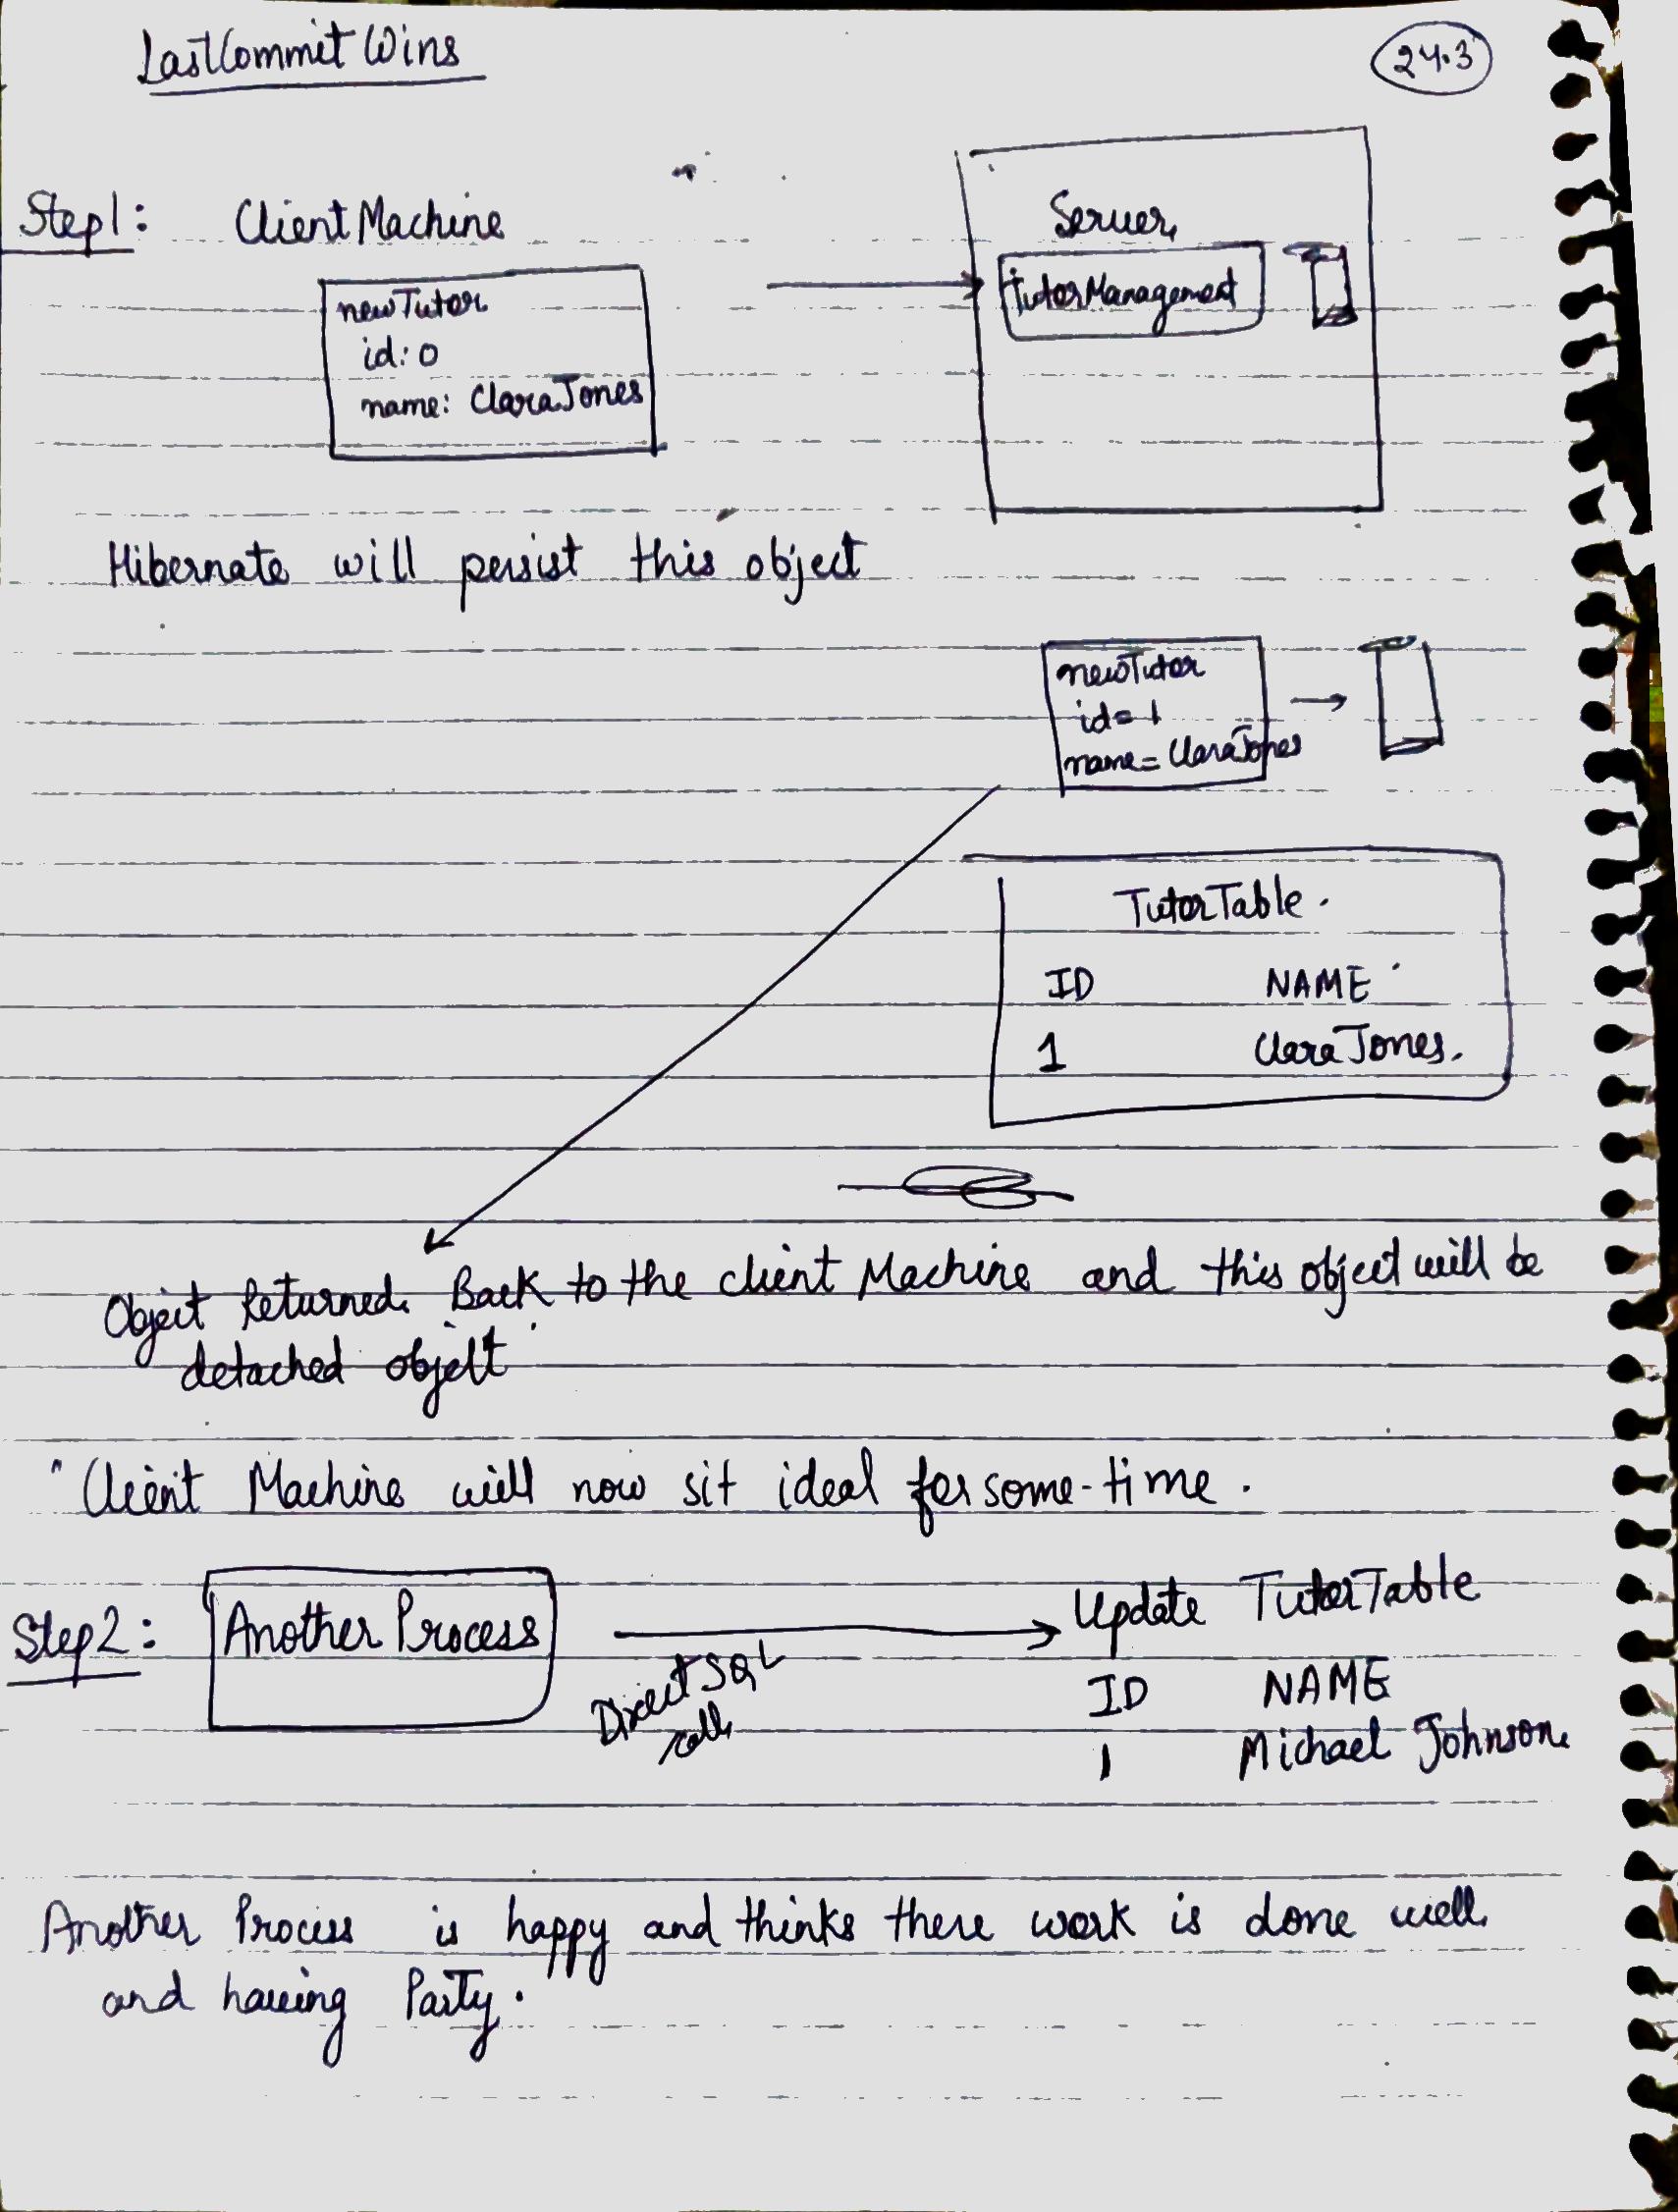 LastCommit Wins
24.3
Step1: Client Machine
Server
newTutor
id: 0
name: Clara Jones
TutorManagement
Hibernate will persist this object
newTutor
id= 1
name= Clara Jones
TutorTable.
ID NAME
1 Clara Jones.
Object Returned Back to the client Machine and this object will be
detached object
"Client Machine will now sit ideal for some-time.
Step2: Another Process
Direct SQL
call
Update TutorTable
ID NAME
1 Michael Johnson
Another Process is happy and thinks there work is done well
and having Party.